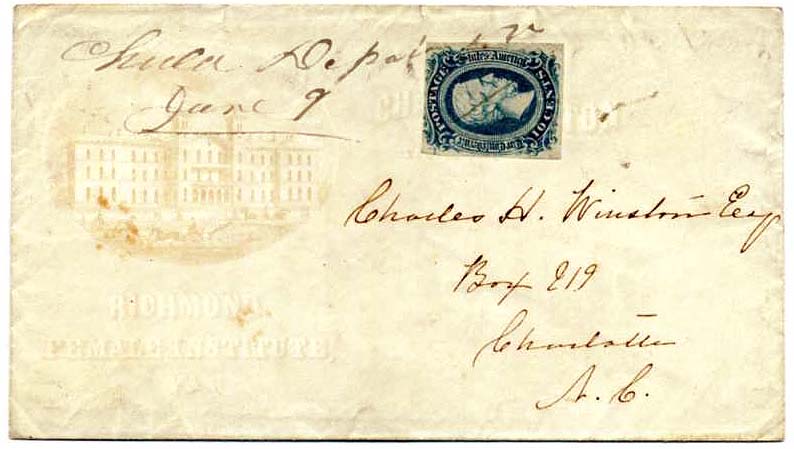 Chula Depot Va
June 9
POSTAGE
States America
TEN CENTS
The Confederate
Charles H. Winston Esq
Box 219
Charlotte
N. C.
RICHMOND
FEMALE INSTITUTE
VA.